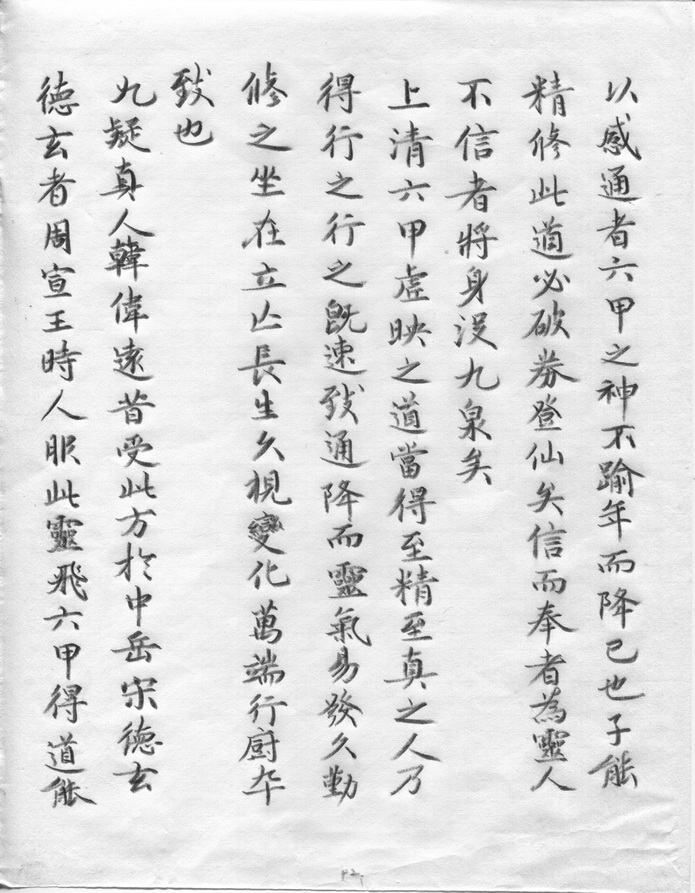 以感通者六甲之神不踰年而降己也子能
精修此道必破券登仙矣信而奉者為靈人
不信者將身沒九泉矣
上清六甲虛映之道當得至精至真之人乃
得行之行之既速致通降而靈氣易發久勤
修之坐在立亡長生久視變化萬端行廚卒
致也
九疑真人韓偉遠昔受此方於中岳宋德玄
德玄者周宣王時人服此靈飛六甲得道能